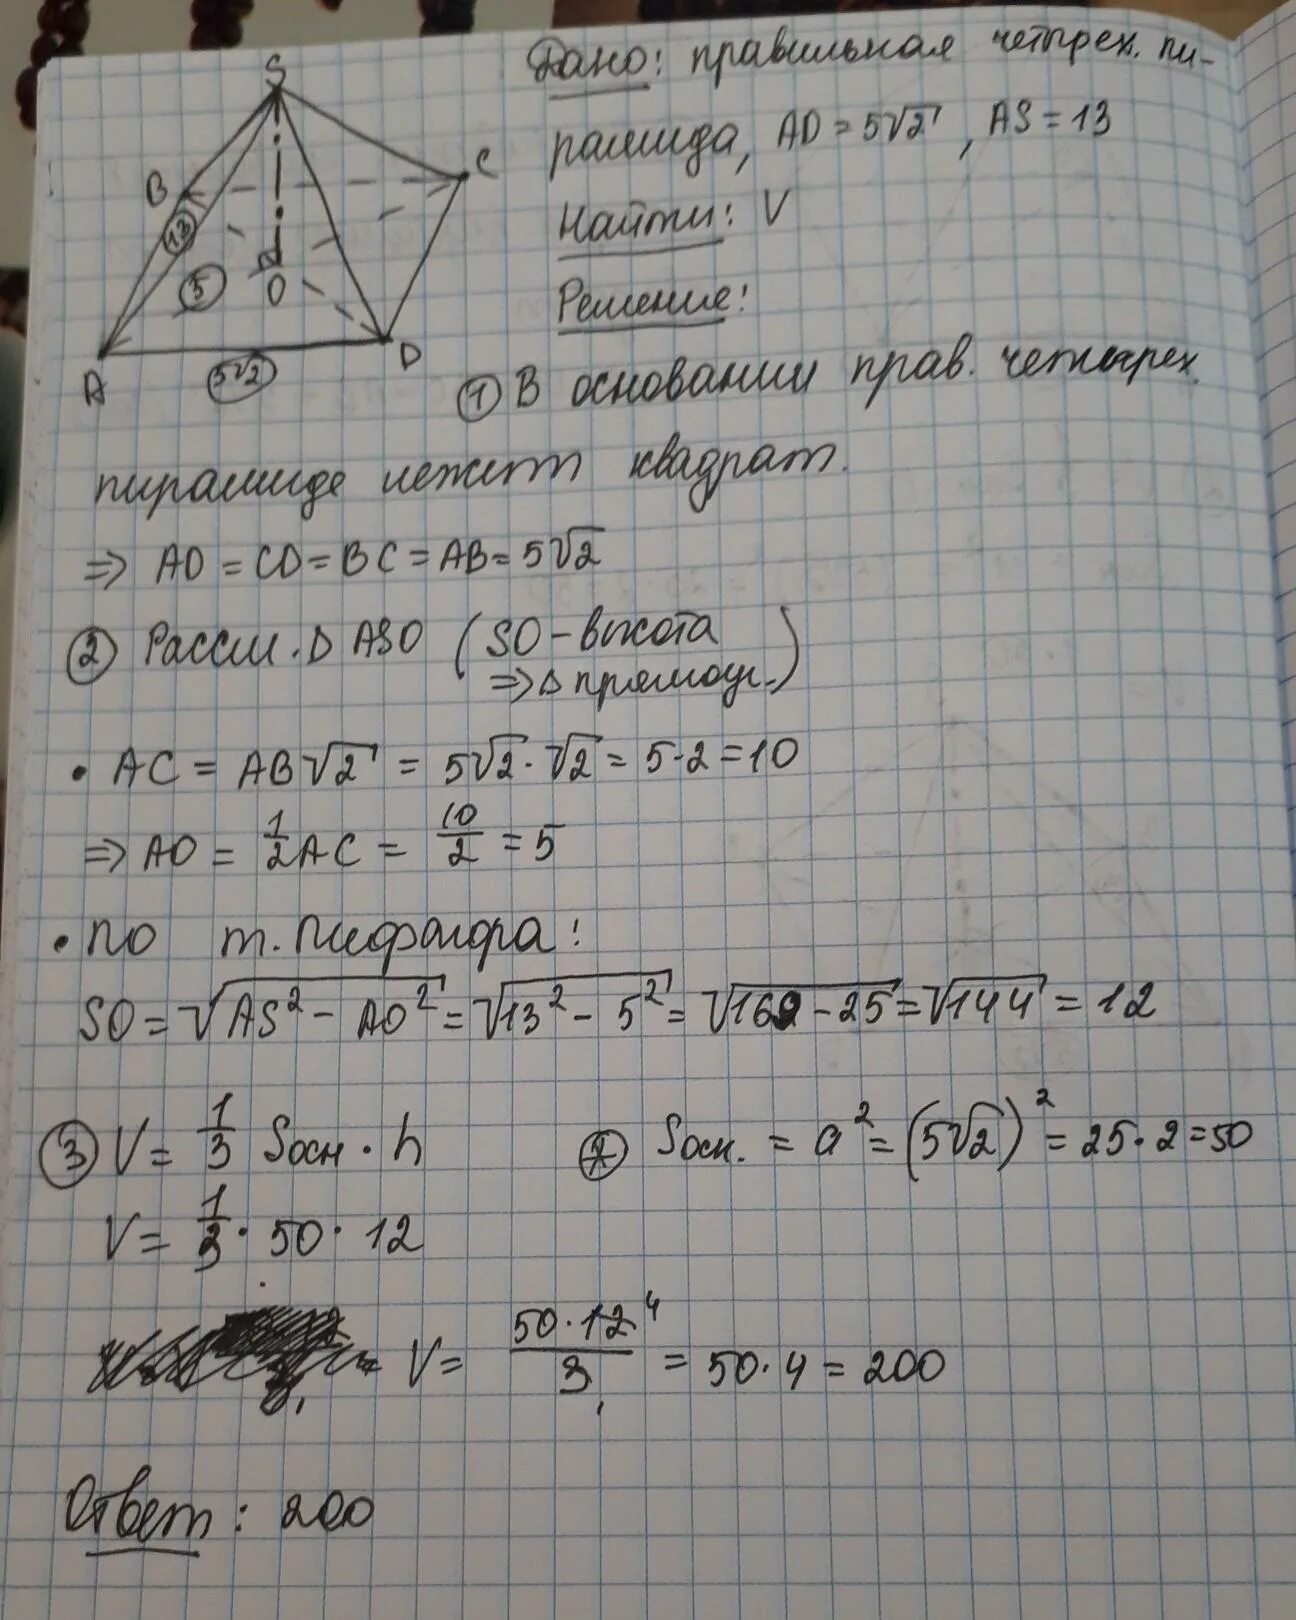 S
B
C
13
5
O
A
D
5√2
Дано: правильная четырех. пи-
рамида, AD = 5√2, AS = 13
Найти: V
Решение:
① В основании прав. четырех.
пирамиде лежит квадрат.
=> AD = CD = BC = AB = 5√2
② Рассм. △ ASO (SO - высота
=> △ прямоуг.)
• AC = AB√2 = 5√2 · √2 = 5·2 = 10
=> AO = 1/2 AC = 10/2 = 5
• по т. Пифагора:
SO = √(AS² - AO²) = √(13² - 5²) = √(169 - 25) = √144 = 12
③ V = 1/3 Sосн · h
Sосн. = a² = (5√2)² = 25·2 = 50
V = 1/3 · 50 · 12
V = 50·12⁴/3₁ = 50·4 = 200
Ответ: 200